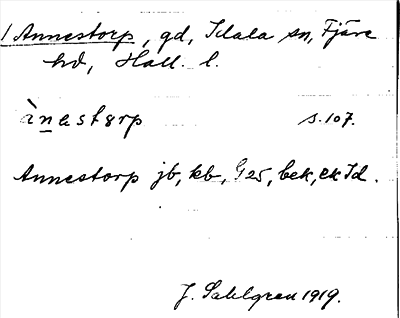 1 Annestorp, gd, Idala sn, Fjäre
hd, Hall. l.
ànastərp s. 107.
Annestorp jb, kb, G25, bek, ek Id.
J. Sahlgren 1919.